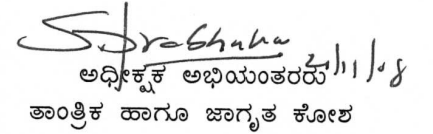 S. Prabhaha 21/11/08
ಅಧೀಕ್ಷಕ ಅಭಿಯಂತರರು
ತಾಂತ್ರಿಕ ಹಾಗೂ ಜಾಗೃತ ಕೋಶ